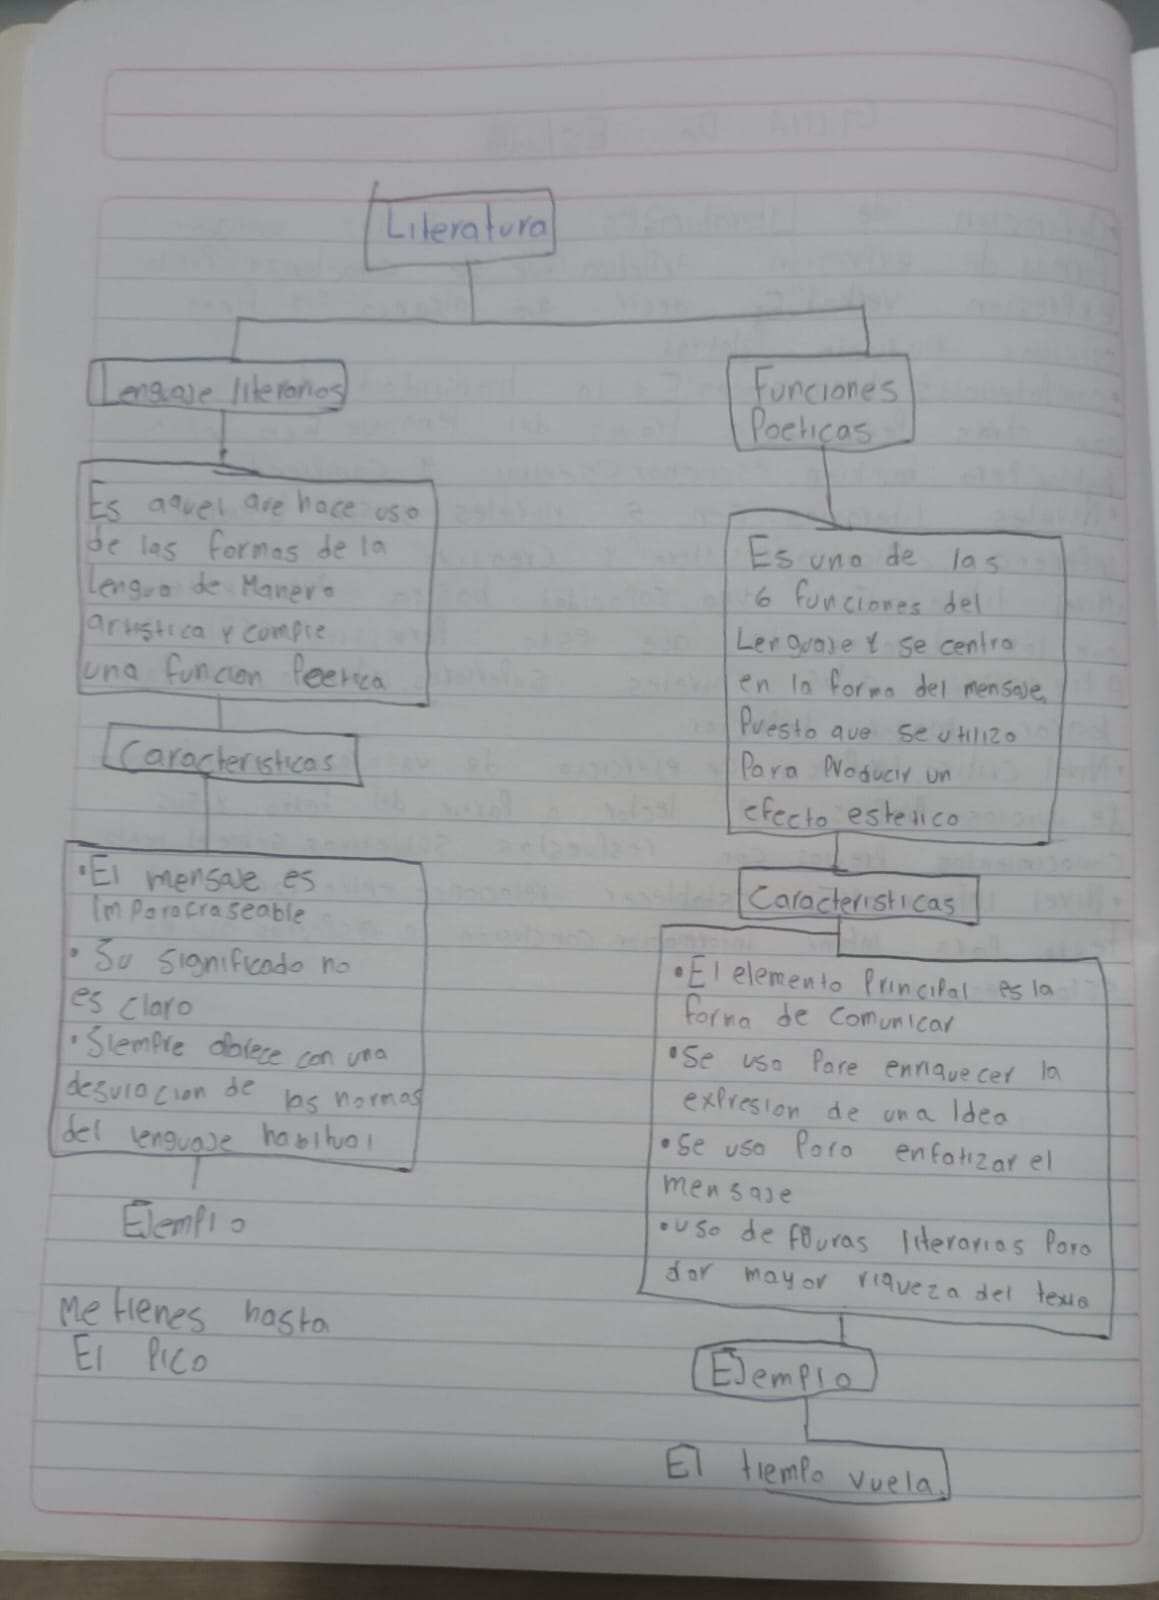 Literatura
Lenguaje literarios
Es aquel que hace uso
de las formas de la
Lengua de Manera
artistica y cumple
una funcion Poetica
Caracteristicas
• El mensaje es
Imparafraseable
• Su significado no
es claro
• Siempre obrece con una
desviacion de las normas
del lenguaje habitual
Ejemplo
Me tienes hasta
El Pico
Funciones
Poeticas
Es una de las
6 funciones del
Lenguaje y se centra
en la forma del mensaje,
Puesto que se utiliza
Para Producir un
efecto estetico
Caracteristicas
• El elemento Principal es la
forma de comunicar
• Se usa Para enriquecer la
expresion de una Idea
• Se usa Para enfatizar el
mensaje
• uso de figuras literarias Para
dar mayor riqueza del texto
Ejemplo
El tiempo vuela.